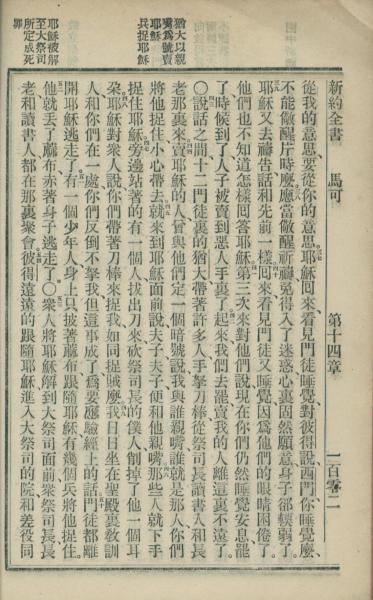 新約全書 馬可 第十四章 一百零二
從我的意思要從你的意思耶穌回來看見門徒睡覺對彼得說西門你睡覺麼
不能儆醒片時麼應當儆醒祈禱免得入了迷惑心裏固然願意身子卻輭弱了
耶穌又去禱告話和先前一樣回來看見門徒又睡覺因爲他們的眼睛困倦了
他們也不知道怎樣回答耶穌第三次來對他們說現在你們仍然睡覺安息罷
了時候到了人子被賣到惡人手裏了起來我們去罷賣我的人離這裏不遠了
○說話之間十二門徒裏的猶大帶著許多人手拏刀棒從祭司長讀書人和長
老那裏來賣耶穌的人曾與他們定一個暗號說我與誰親嘴誰就是那人你們
將他捉住小心帶去就來到耶穌面前說夫子夫子便和他親嘴那些人就下手
捉住耶穌旁邊站著的有一個人拔出刀來砍祭司長的僕人削掉了他一個耳
朵耶穌對衆人說你們帶著刀棒來捉我如同捉賊麼我日日坐在聖殿裏敎訓
人和你們在一處你們反倒不拏我但這事成了爲要應驗經上的話門徒都離
開耶穌逃走了有一個少年人身上只披著蔴布跟隨耶穌有幾個兵將他捉住
他就丟了蔴布赤著身子逃走了○衆人將耶穌解到大祭司面前衆祭司長長
老和讀書人都在那裏聚會彼得遠遠的跟隨耶穌進入大祭司的院和差役同
猶大以親
嘴爲號賣
耶穌
兵捉耶穌
耶穌被解
至大祭司
所定成死
罪